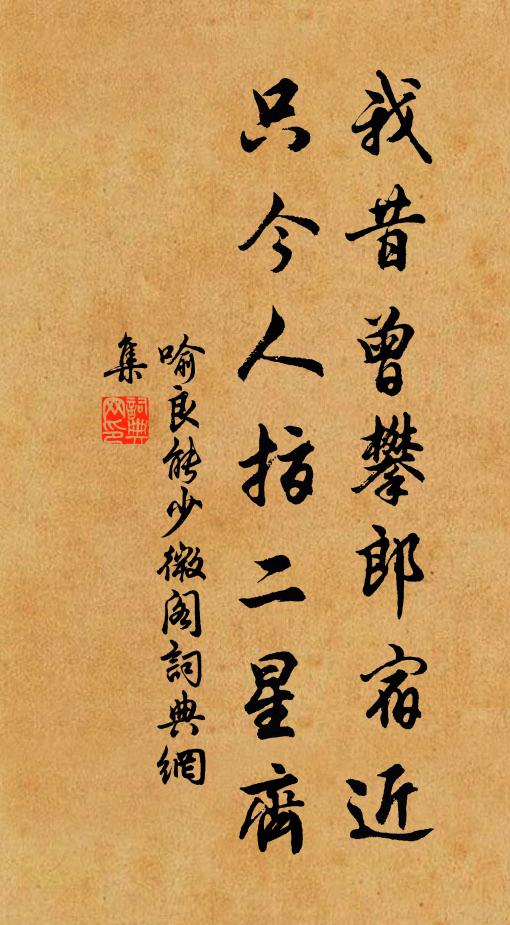 我昔曾攀郎宿近
只今人指二星齊
喻良能少微閣詞典網
集
詞典網印